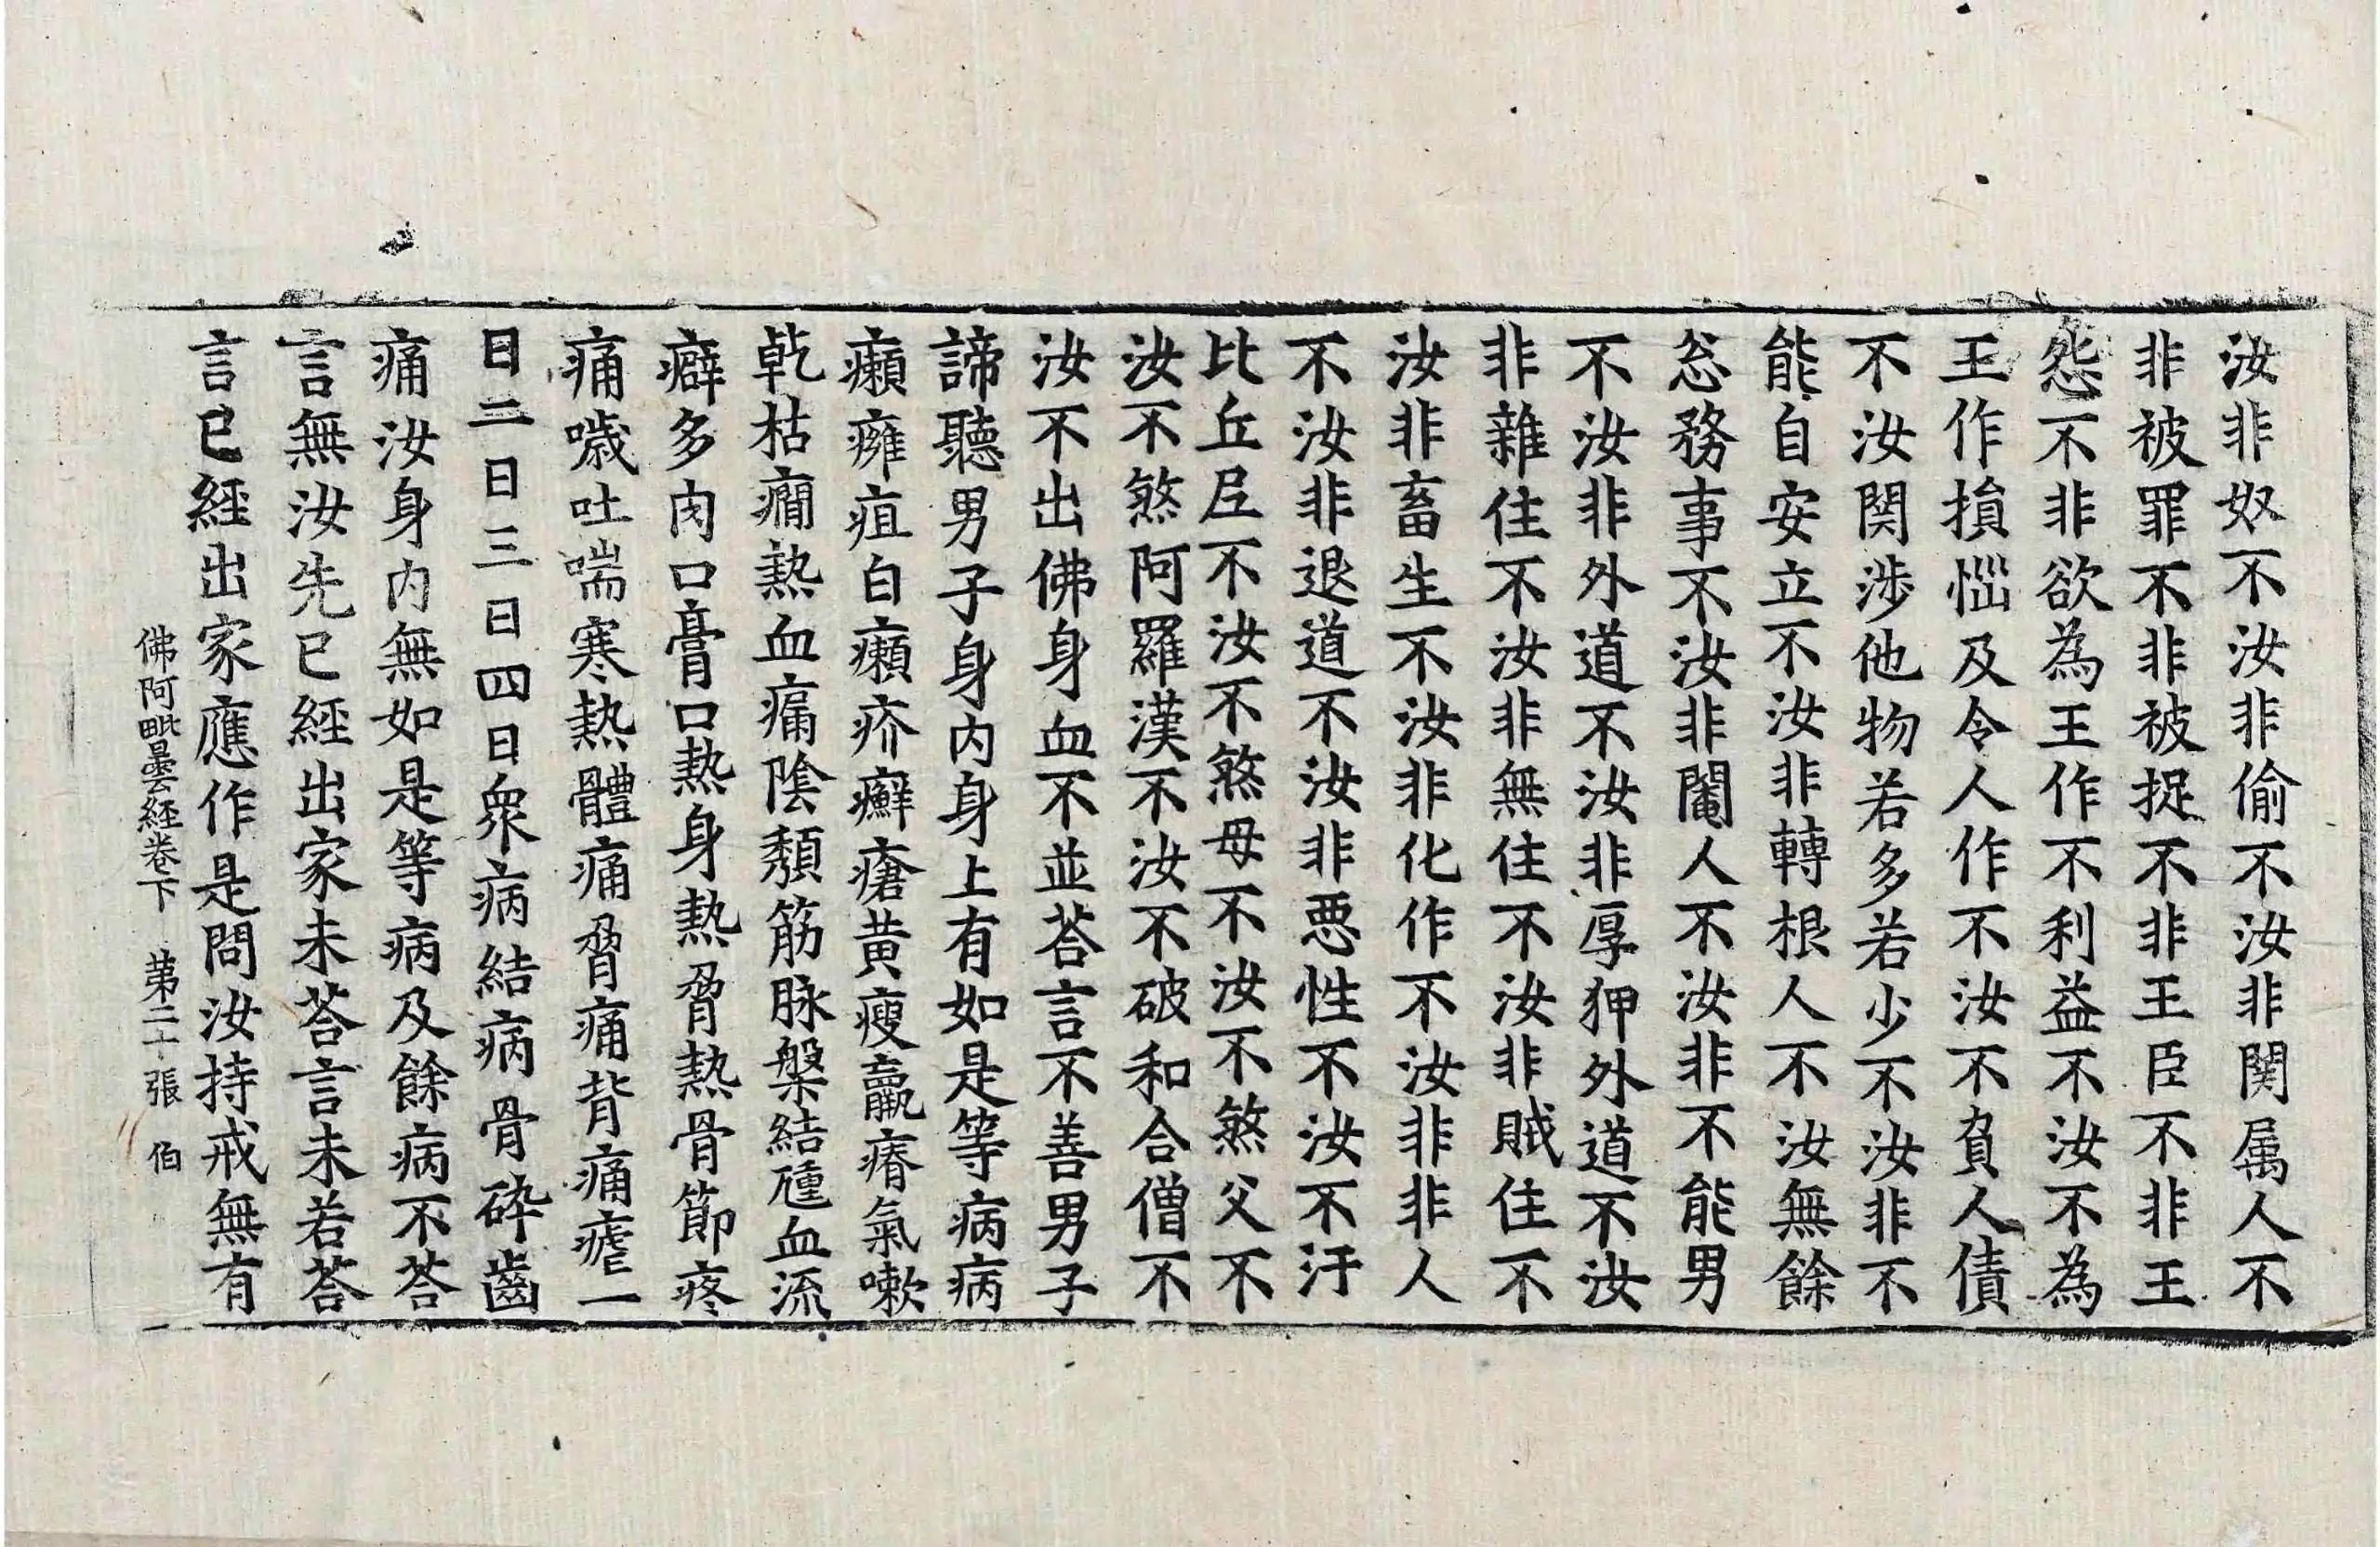 汝非奴不汝非偷不汝非関属人不
非被罪不非被捉不非王臣不非王
怨不非欲為王作不利益不汝不為
王作損惱及令人作不汝不負人債
不汝関涉他物若多若少不汝非不
能自安立不汝非轉根人不汝無餘
忩務事不汝非閹人不汝非不能男
不汝非外道不汝非厚狎外道不汝
非雜住不汝非無住不汝非賊住不
汝非畜生不汝非化作不汝非非人
不汝非退道不汝非悪性不汝不汙
比丘尼不汝不煞母不汝不煞父不
汝不煞阿羅漢不汝不破和合僧不
汝不出佛身血不並荅言不善男子
諦聽男子身內身上有如是等病病
癩癰疽白癩疥癬瘡黃瘦羸瘠氣嗽
乹枯癇熱血痛陰頽筋脉槃結瘇血流
癖多肉口膏口熱身熱脅熱骨節疼
痛噦吐喘寒熱體痛脅痛背痛瘧一
日二日三日四日衆病結病骨碎齒
痛汝身內無如是等病及餘病不荅
言無汝先已經出家未荅言未若荅
言已經出家應作是問汝持戒無有
佛阿毗曇経卷下　第二十張　伯